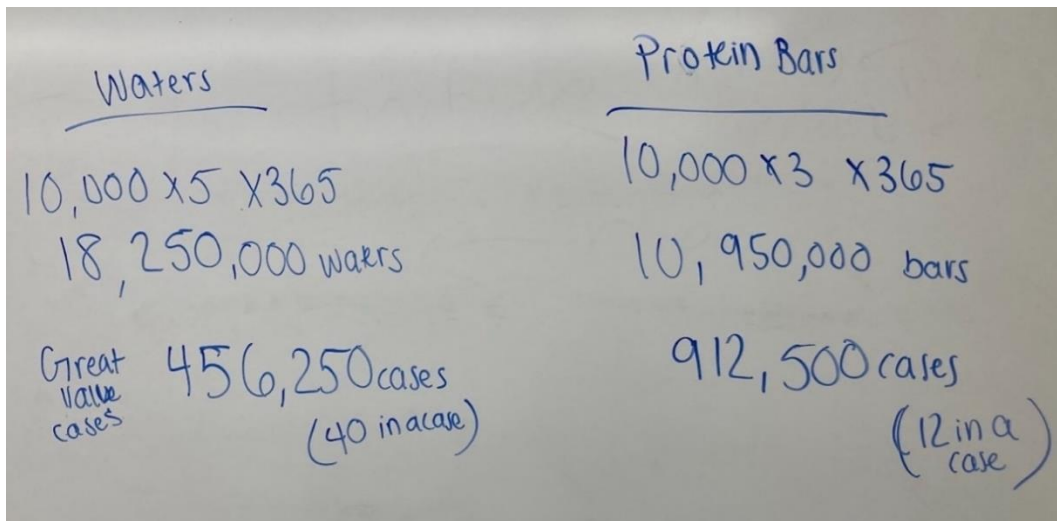 Waters
10,000 x5 x365
18,250,000 waters
Great
Value
cases
456,250 cases
(40 in a case)
Protein Bars
10,000 x3 x365
10,950,000 bars
912,500 cases
(12 in a
case)